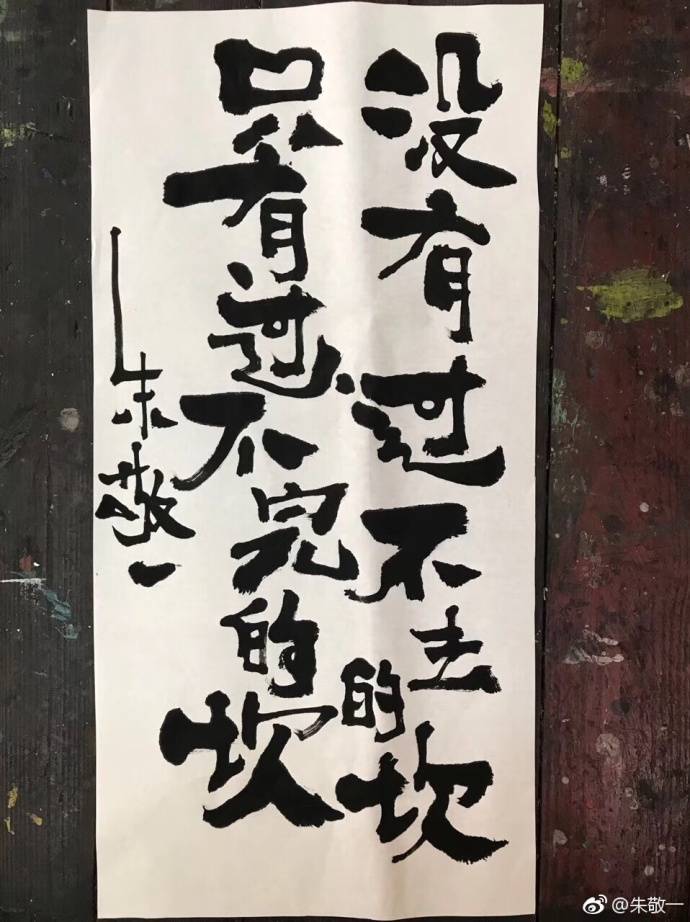 没有过不去的坎
只有过不完的坎
朱敬一
@朱敬一